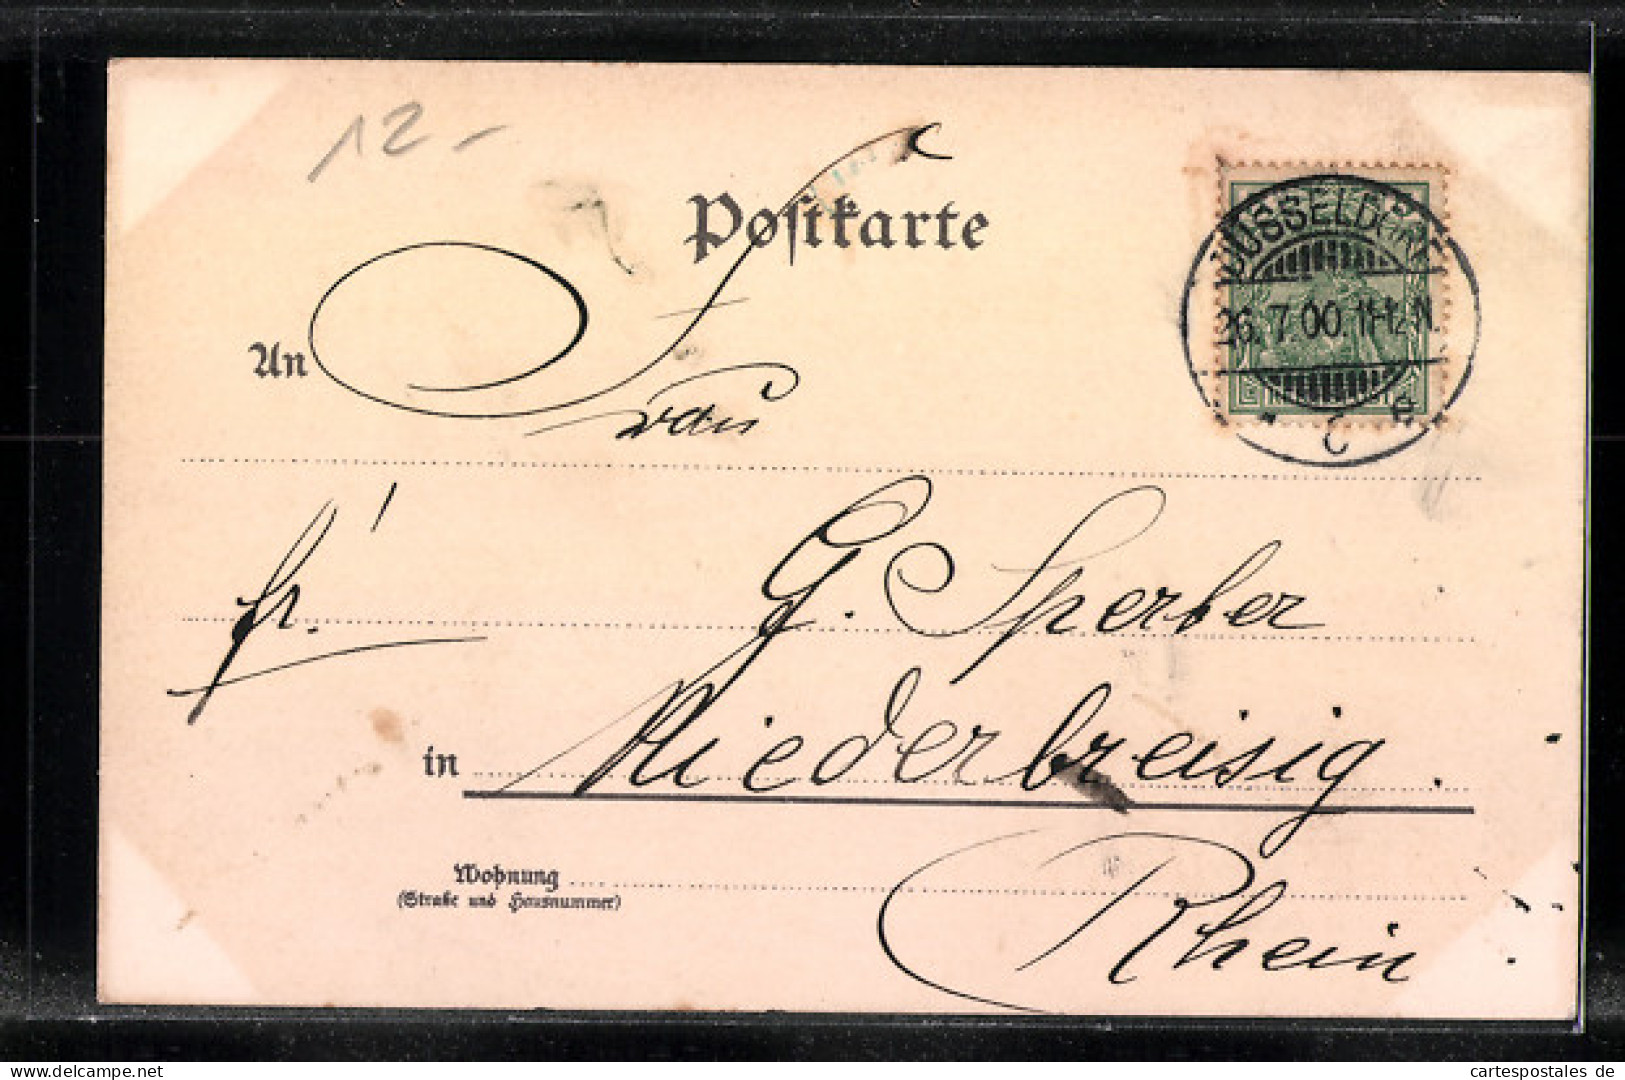 12-
Postkarte
DÜSSELDORF
26.7.00.11-12N.
* c
An Frau
fr.
G. Sperber
in Niederbreisig.
Wohnung
(Straße und Hausnummer)
Rhein
delcampe.net
cartespostales de